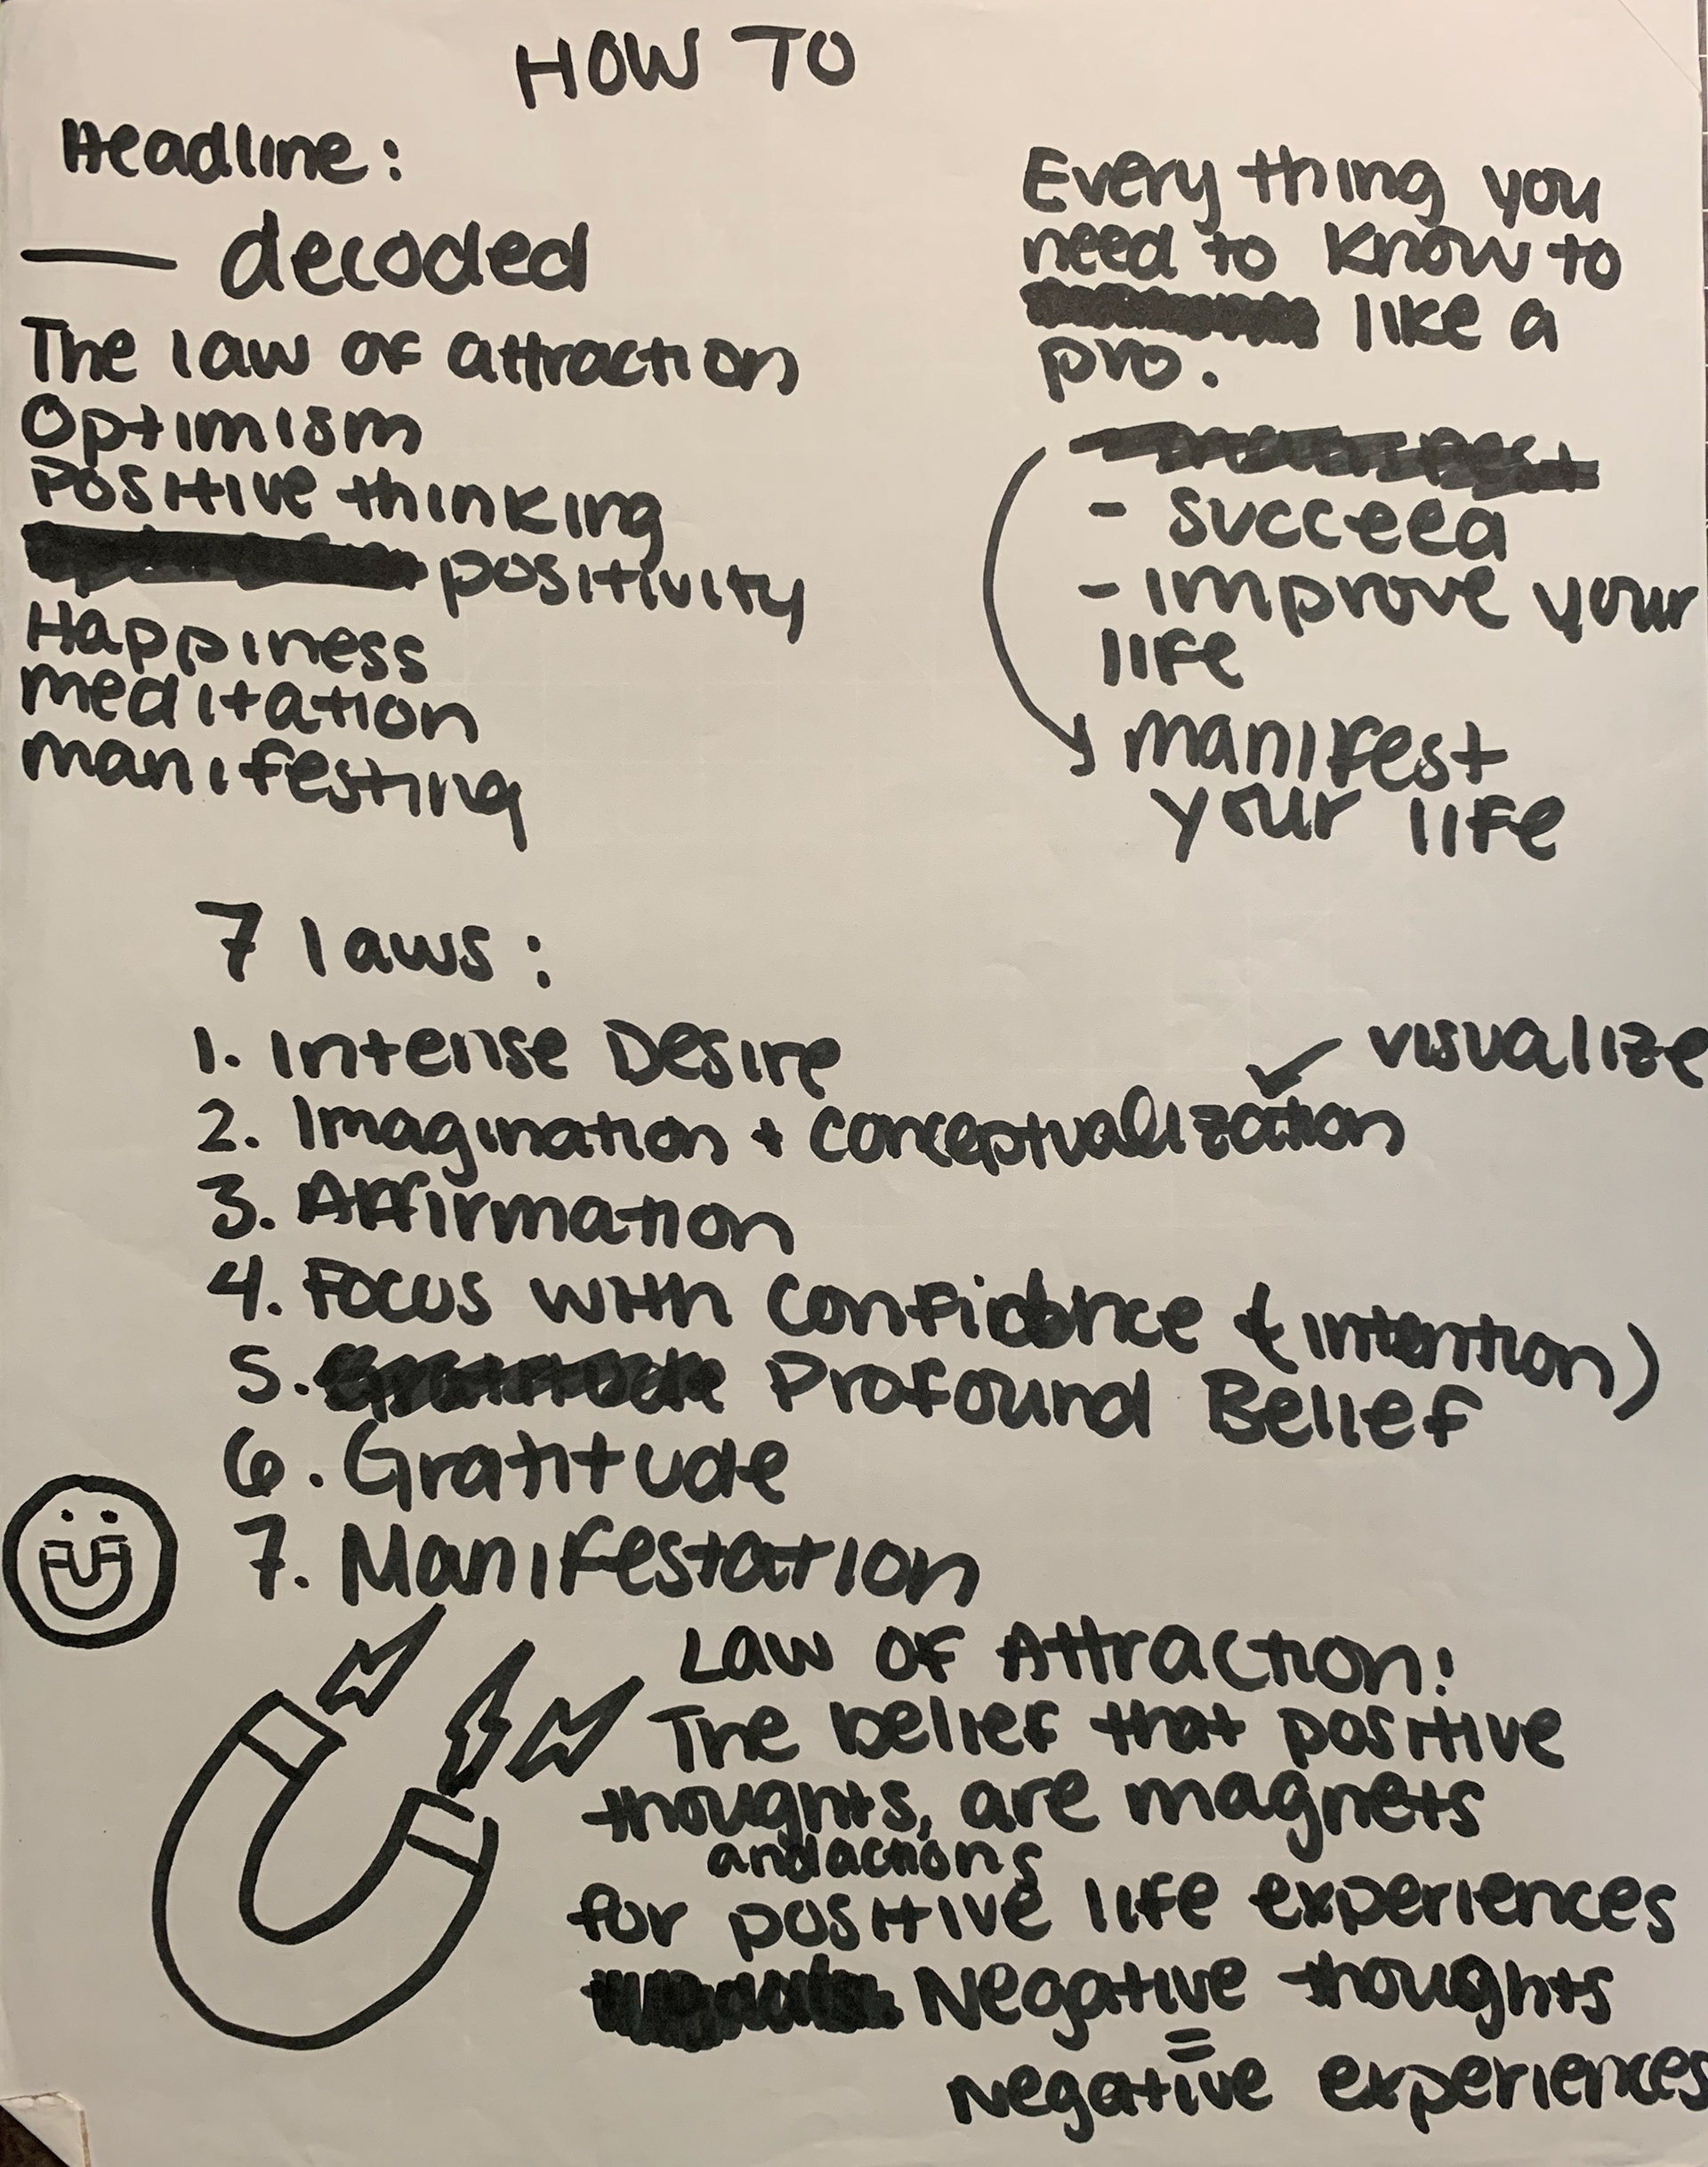 HOW TO
Headline:
— decoded
The law of attraction
Optimism
Positive thinking
positivity
Happiness
meditation
manifesting
Every thing you
need to know to
like a
pro.
- succeed
- improve your
life
manifest
your life
7 laws:
1. Intense Desire
visualize
2. Imagination + conceptualization
3. Affirmation
4. Focus with confidence & (intention)
5. Profound Belief
6. Gratitude
7. Manifestation
Law of Attraction:
The belief that positive
thoughts, are magnets
and actions
for positive life experiences
Negative thoughts
=
negative experiences